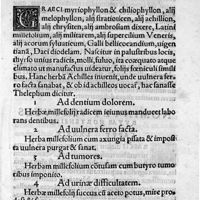 GRAECI myriophyllon & chiliophyllon, alij
melophyllon, alij stratioticen, alij achillion,
alij chrysiten, alij ambrosiam dixere, Latini
millefolium, alij militarem, alij supercilium Veneris,
alij acorum syluaticum, Galli bellicocandium,
tiani, Daci diodelam. Nascitur in paludibus locis,
styrio unius radicis, molli, fuluo, ita coæquato atque
elimato ut manufactus uideatur, folijs fœniculi similibus
bus. Hanc herbã Achilles inuenit, unde uulnera ferro
facta sanabat, & ob id achilleos uocat, hac sanasse
Thelephum dicitur.
1 Ad dentium dolorem.
Herbæ millefolij radicem ieiunus manducet laborans
rans dentibus.
2 Ad uulnera ferro facta.
Herba millefolium cum axungia pisata & imposita
uulnera purgat & sanat.
3 Ad tumores.
Herbam millefolium cõtusam cum butyro tumoribus
ribus imponito.
4 Ad urinæ difficultatem.
Herbæ millefolij succus cũ aceto potus, mire prodest